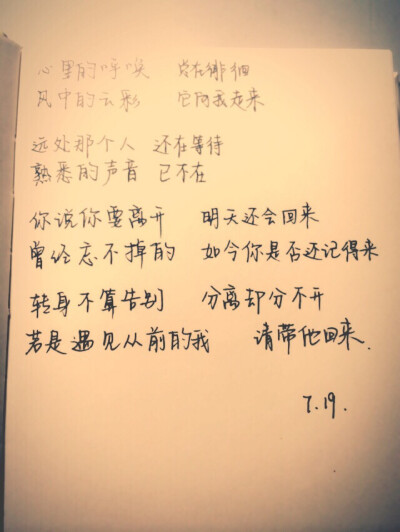 心里的呼唤 总在徘徊
风中的云彩 它向我走来
远处那个人 还在等待
熟悉的声音 已不在
你说你要离开 明天还会回来
曾经忘不掉的 如今你是否还记得来
转身不算告别 分离却分不开
若是遇见从前的我 请带他回来.
7.19.